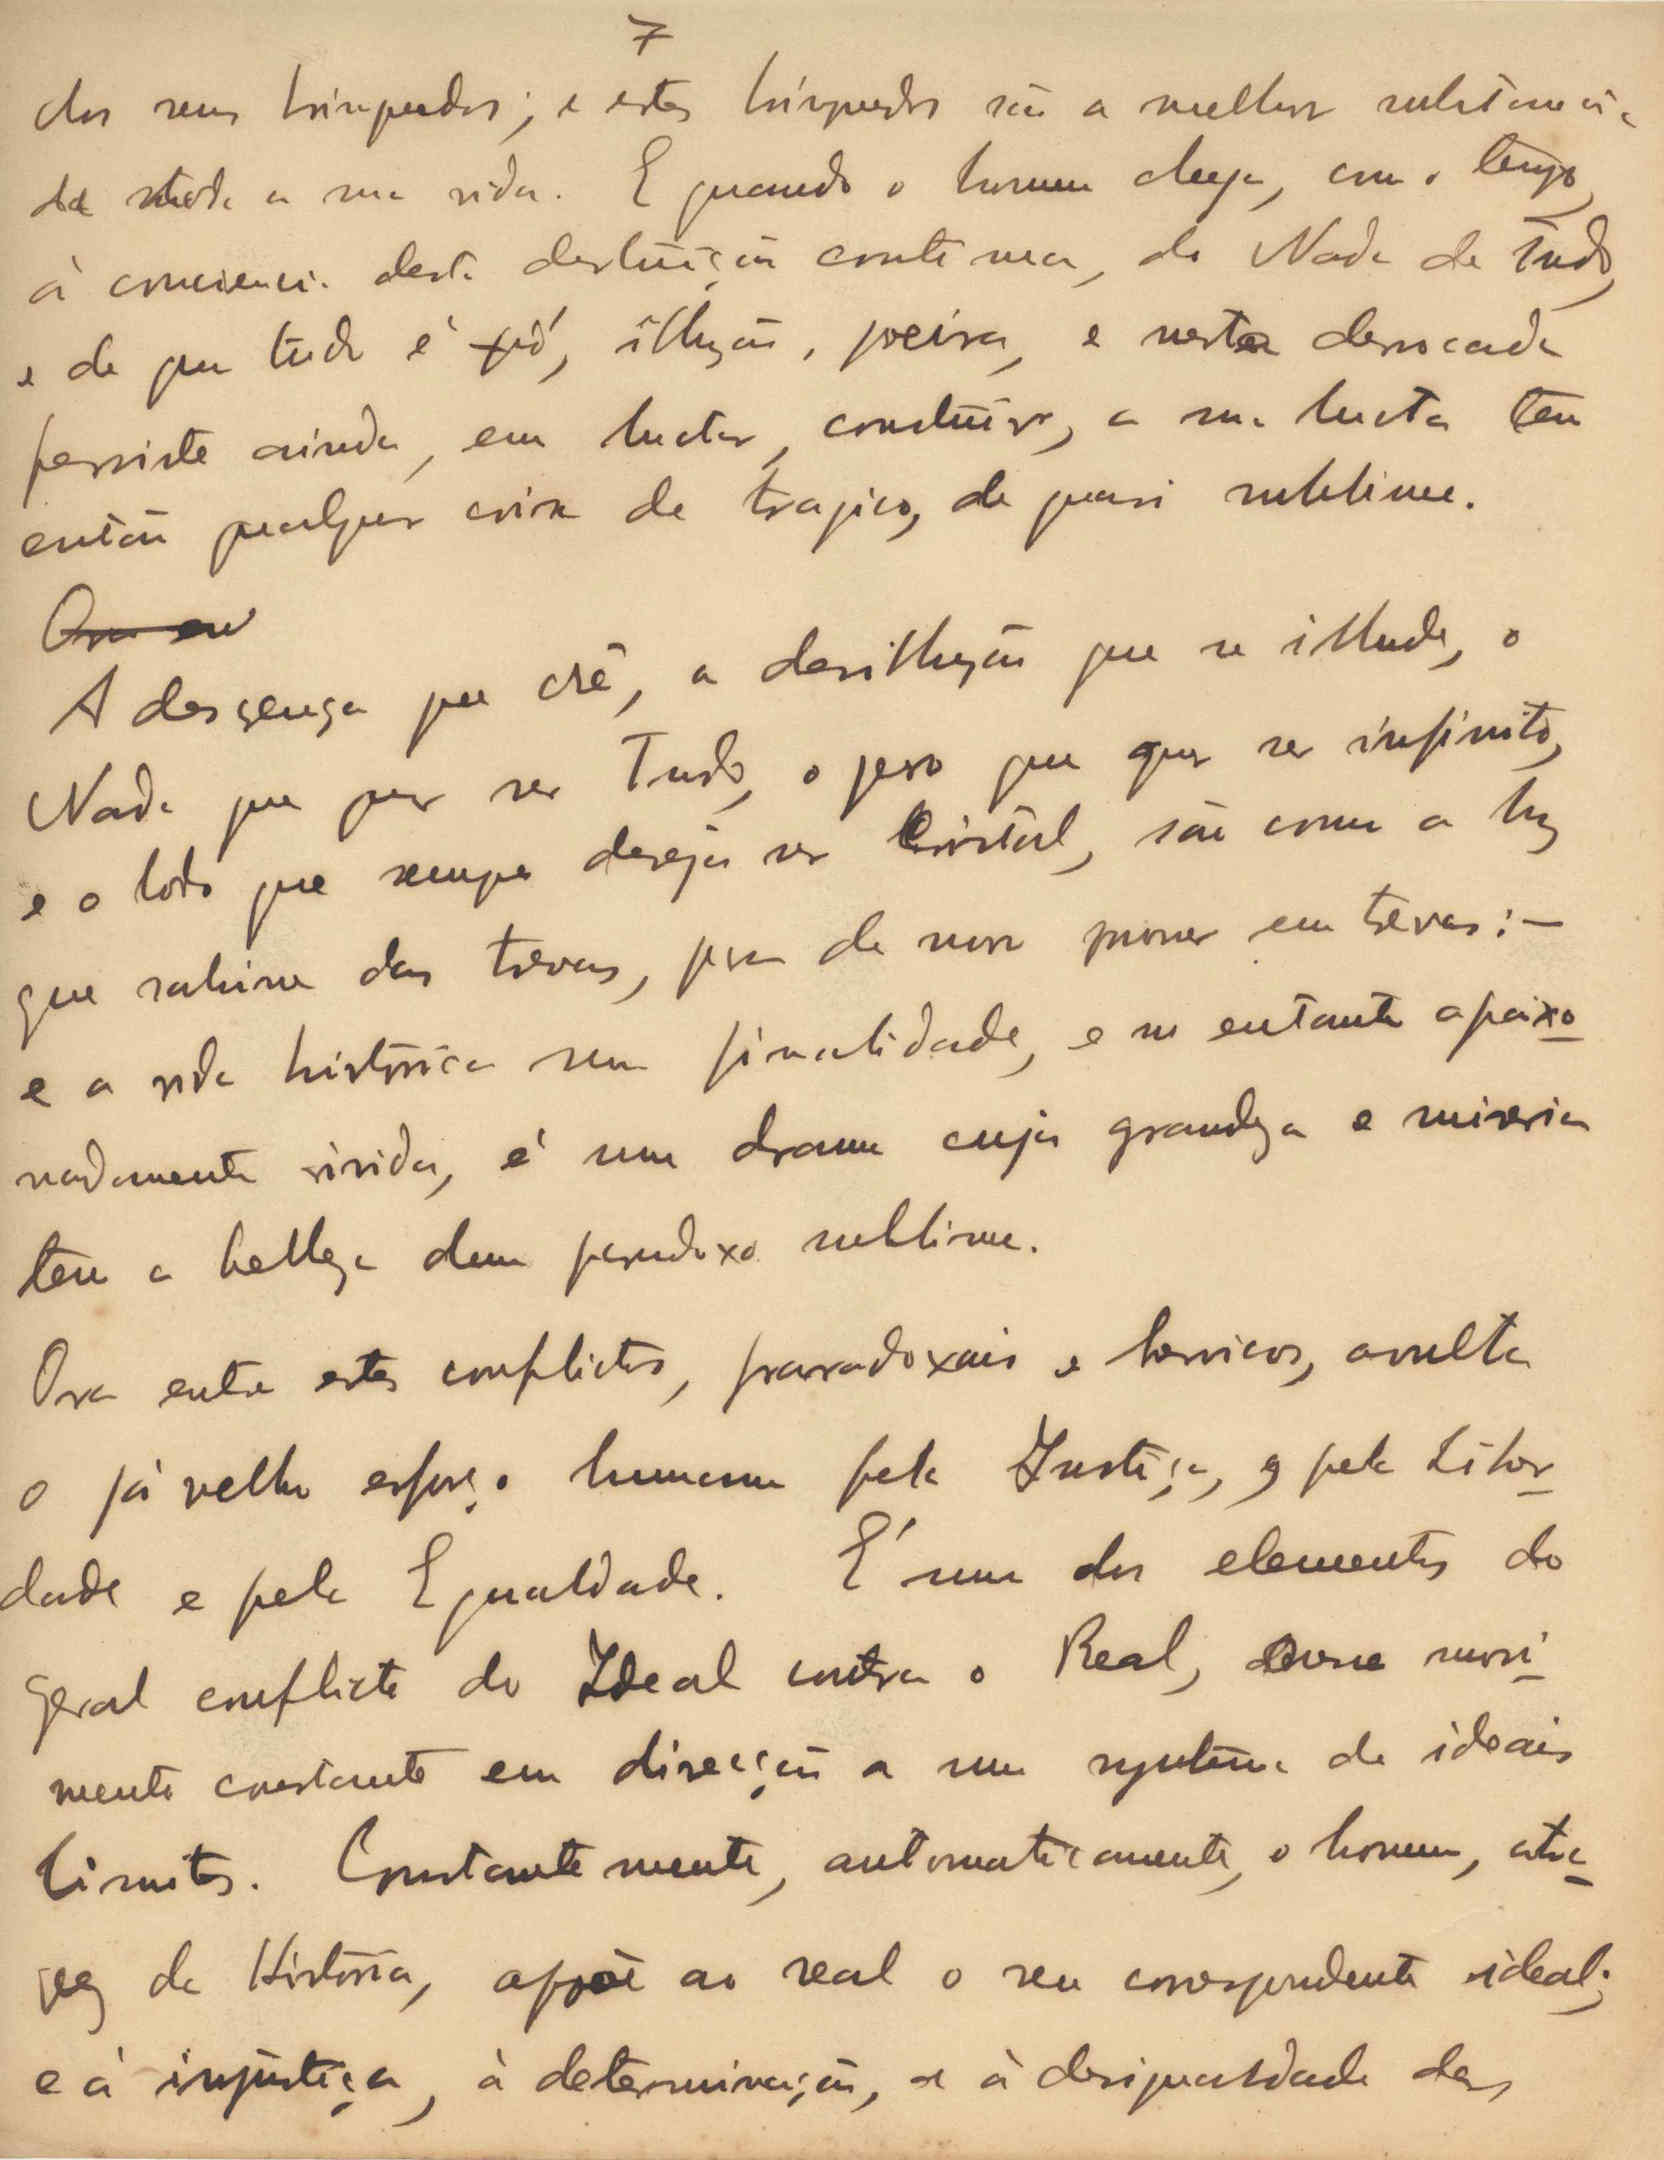 7
dos seus brinquedos; e estes brinquedos são a melhor substancia
de toda a sua vida. E quando o homem chega, com o tempo,
á consciencia desta destruição continua, do Nada de tudo,
e de que tudo é pó, illuzão, poeira, e nesta derrocada
persiste ainda, em luctar, construir, a sua lucta tem
então qualquer coisa de tragico, de quasi sublime.
Ora eu
A descrença que crê, a desilluzão que se illude, o
Nada que quer ser Tudo, o que quer ser infinito,
e o lodo que sempre deseja ser Cristal, são como a luz
que sahisse das trevas, para de novo morrer em trevas:—
e a vida historica sem finalidade, e no entanto apaixo
nadamente vivida, é um drama cuja grandeza e miseria
tem a belleza dum paradoxo sublime.
Ora entre estes conflictos, paradoxais e heroicos, avulta
o já velho esforço humano pela Justiça, pela Liber
dade e pela Egualdade. É um dos elementos do
geral conflicto do Ideal contra o Real, movi
mento constante em direcção a um systema de ideais
limites. Constantemente, automaticamente, o homem, atra
vez da Historia, oppõe ao real o seu correspondente ideal;
e á injustiça, á determinação, e á desigualdade das